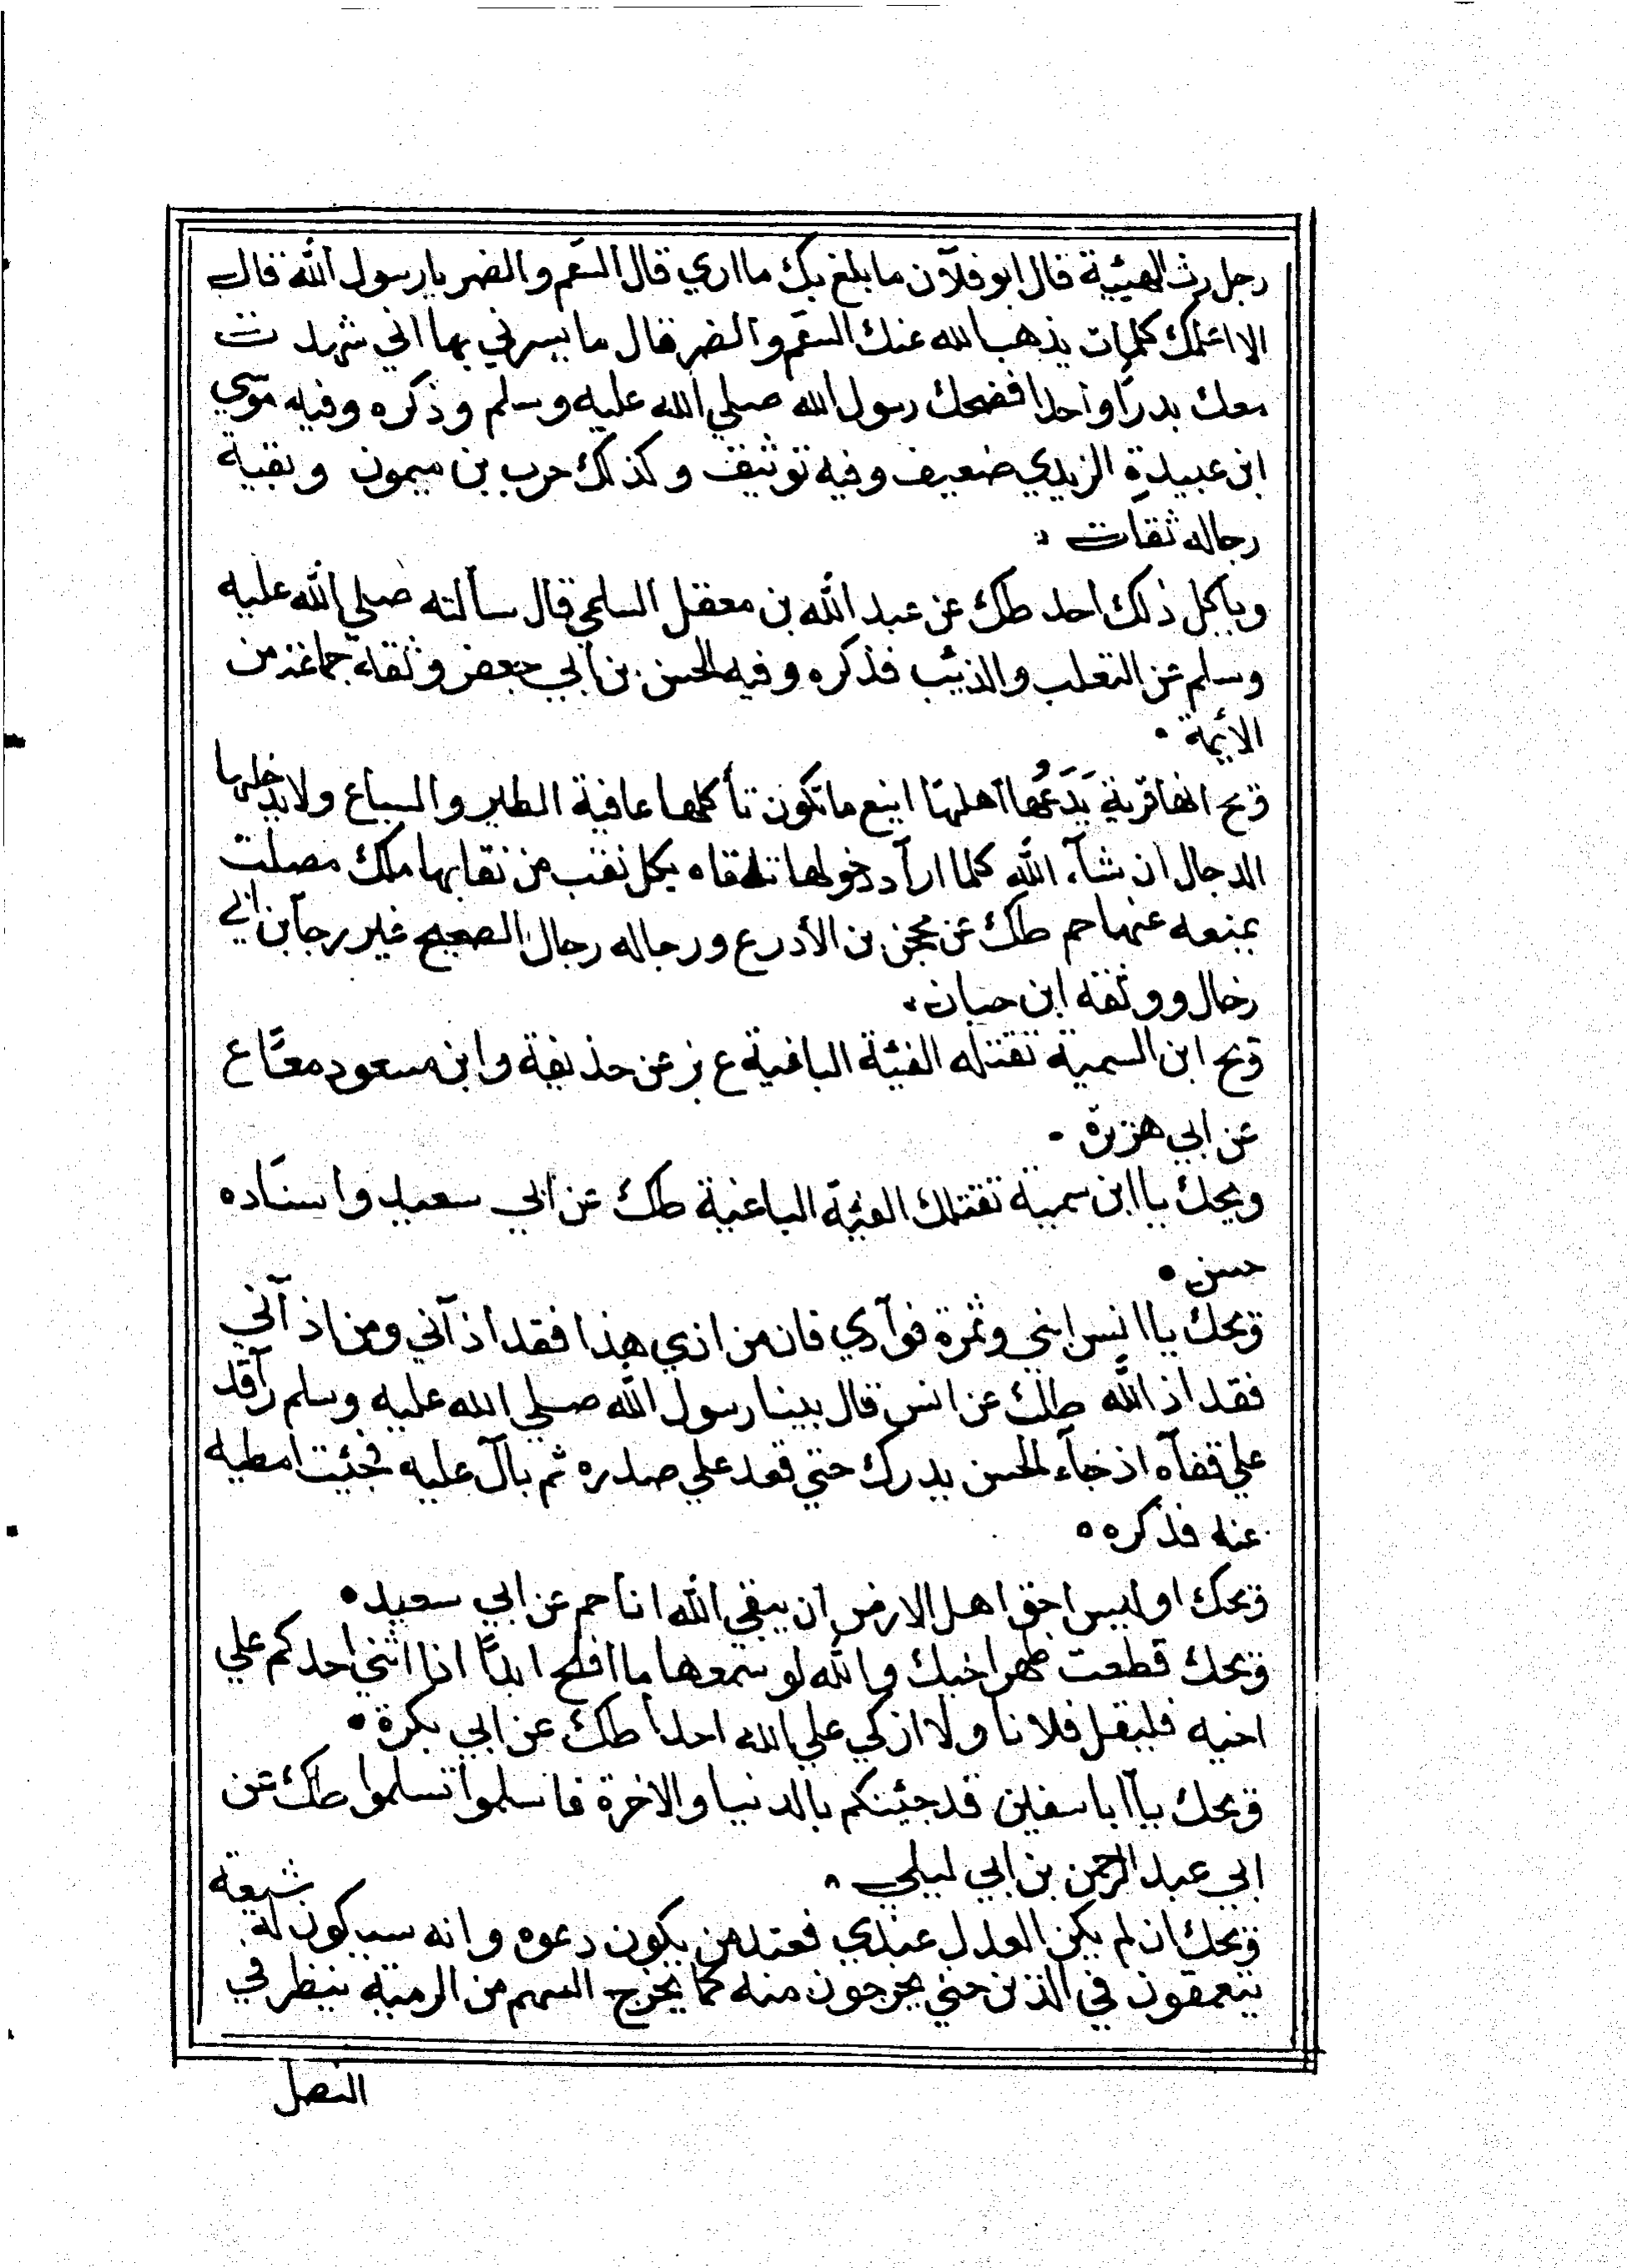 رجل رث الهيئة قال ابو فلان ما بلغ بك ما اري قال السقم والضر يا رسول الله قال
الا اعلمك كلمات يذهب الله عنك السقم والضر قال ما يسرني بها اني شهدت
معك بدرا واحدا فضحك رسول الله صلي الله عليه وسلم وذكره وفيه موسي
ابن عبيدة الزبدي ضعيف وفيه توثيق وكذلك حرب بن ميمون وبقية
رجاله ثقات
ويأكل ذلك احد طك عن عبد الله بن معقل السلمي قال سألته صلي الله عليه
وسلم عن الثعلب والذئب فذكره وفيه الحسن بن أبي جعفر وثقه جماعة من
الأئمة
ويح انها قرية يَدَعُها اهلها اينع ما تكون تأكلها عافية الطير والسباع ولا يدخلها
الدجال ان شاء الله كلما اراد دخولها تلقاه بكل نقب من نقابها ملك مصلت
يمنعه عنها حم طك عن محجن بن الأدرع ورجاله رجال الصحيح غير رجا بن ابي
رخال ووثقه ابن حبان
ويح ابن السمية تقتله الفئة الباغية ع بز عن حذيفة وابن مسعود معًا ع
عن ابي هريرة
ويحك يا ابن سمية تقتلك الفئة الباغية طك عن ابي سعيد واسناده
حسن
ويحك يا انس ابني وثمرة فوآدي فان من اذي هذا فقد اذآني ومن اذآني
فقد اذ الله طك عن انس قال بينا رسول الله صلي الله عليه وسلم رآقد
علي قفآه اذ جآء الحسن يدرك حتي قعد علي صدره ثم بآل عليه فجئت امطيه
عنه فذكره
ويحك اوليس احق اهل الارض ان يبقي الله انا حم عن ابي سعيد
ويحك قطعت ظهر اخيك والله لو سمعها ما افلح ابدًا اذا اثني احدكم علي
اخيه فليقل فلانا ولا ازكي علي الله احدا طك عن ابي بكرة
ويحك يا ابا سفين قد جئتكم بالدنيا والاخرة فاسلموا تسلموا طك عن
ابي عبد الرحمن بن ابي ليلي
ويحك ان لم يكن العدل عندي فعند من يكون دعوه وانه سيكون له شيعة
يتعمقون في الدين حتي يخرجون منه كما يخرج السهم من الرمية ينظر في
النصل